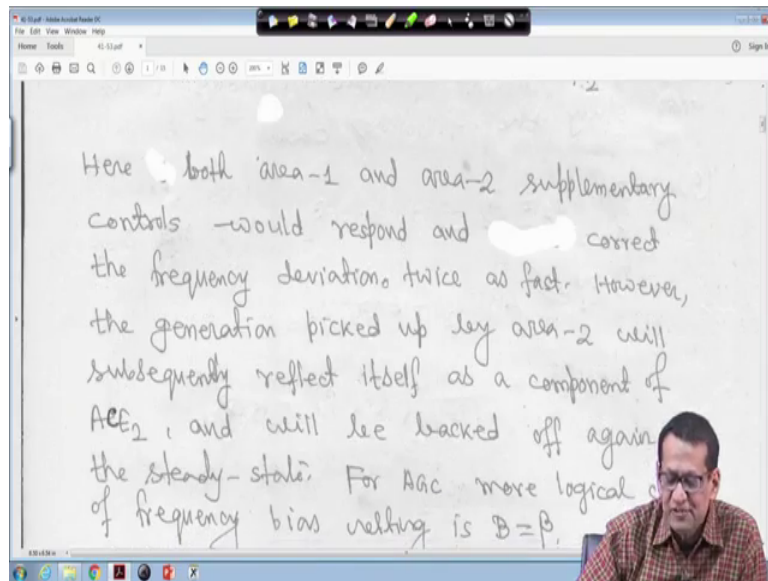 41-53.pdf - Adobe Acrobat Reader DC
File Edit View Window Help
Home Tools 41-53.pdf
Sign In
Here both area-1 and area-2 supplementary
controls would respond and correct
the frequency deviation. twice as fact. However,
the generation picked up by area-2 will
subsequently reflect itself as a component of
ACE2, and will be backed off again
the steady-state. For AGC more logical
of frequency bias setting is B=β.